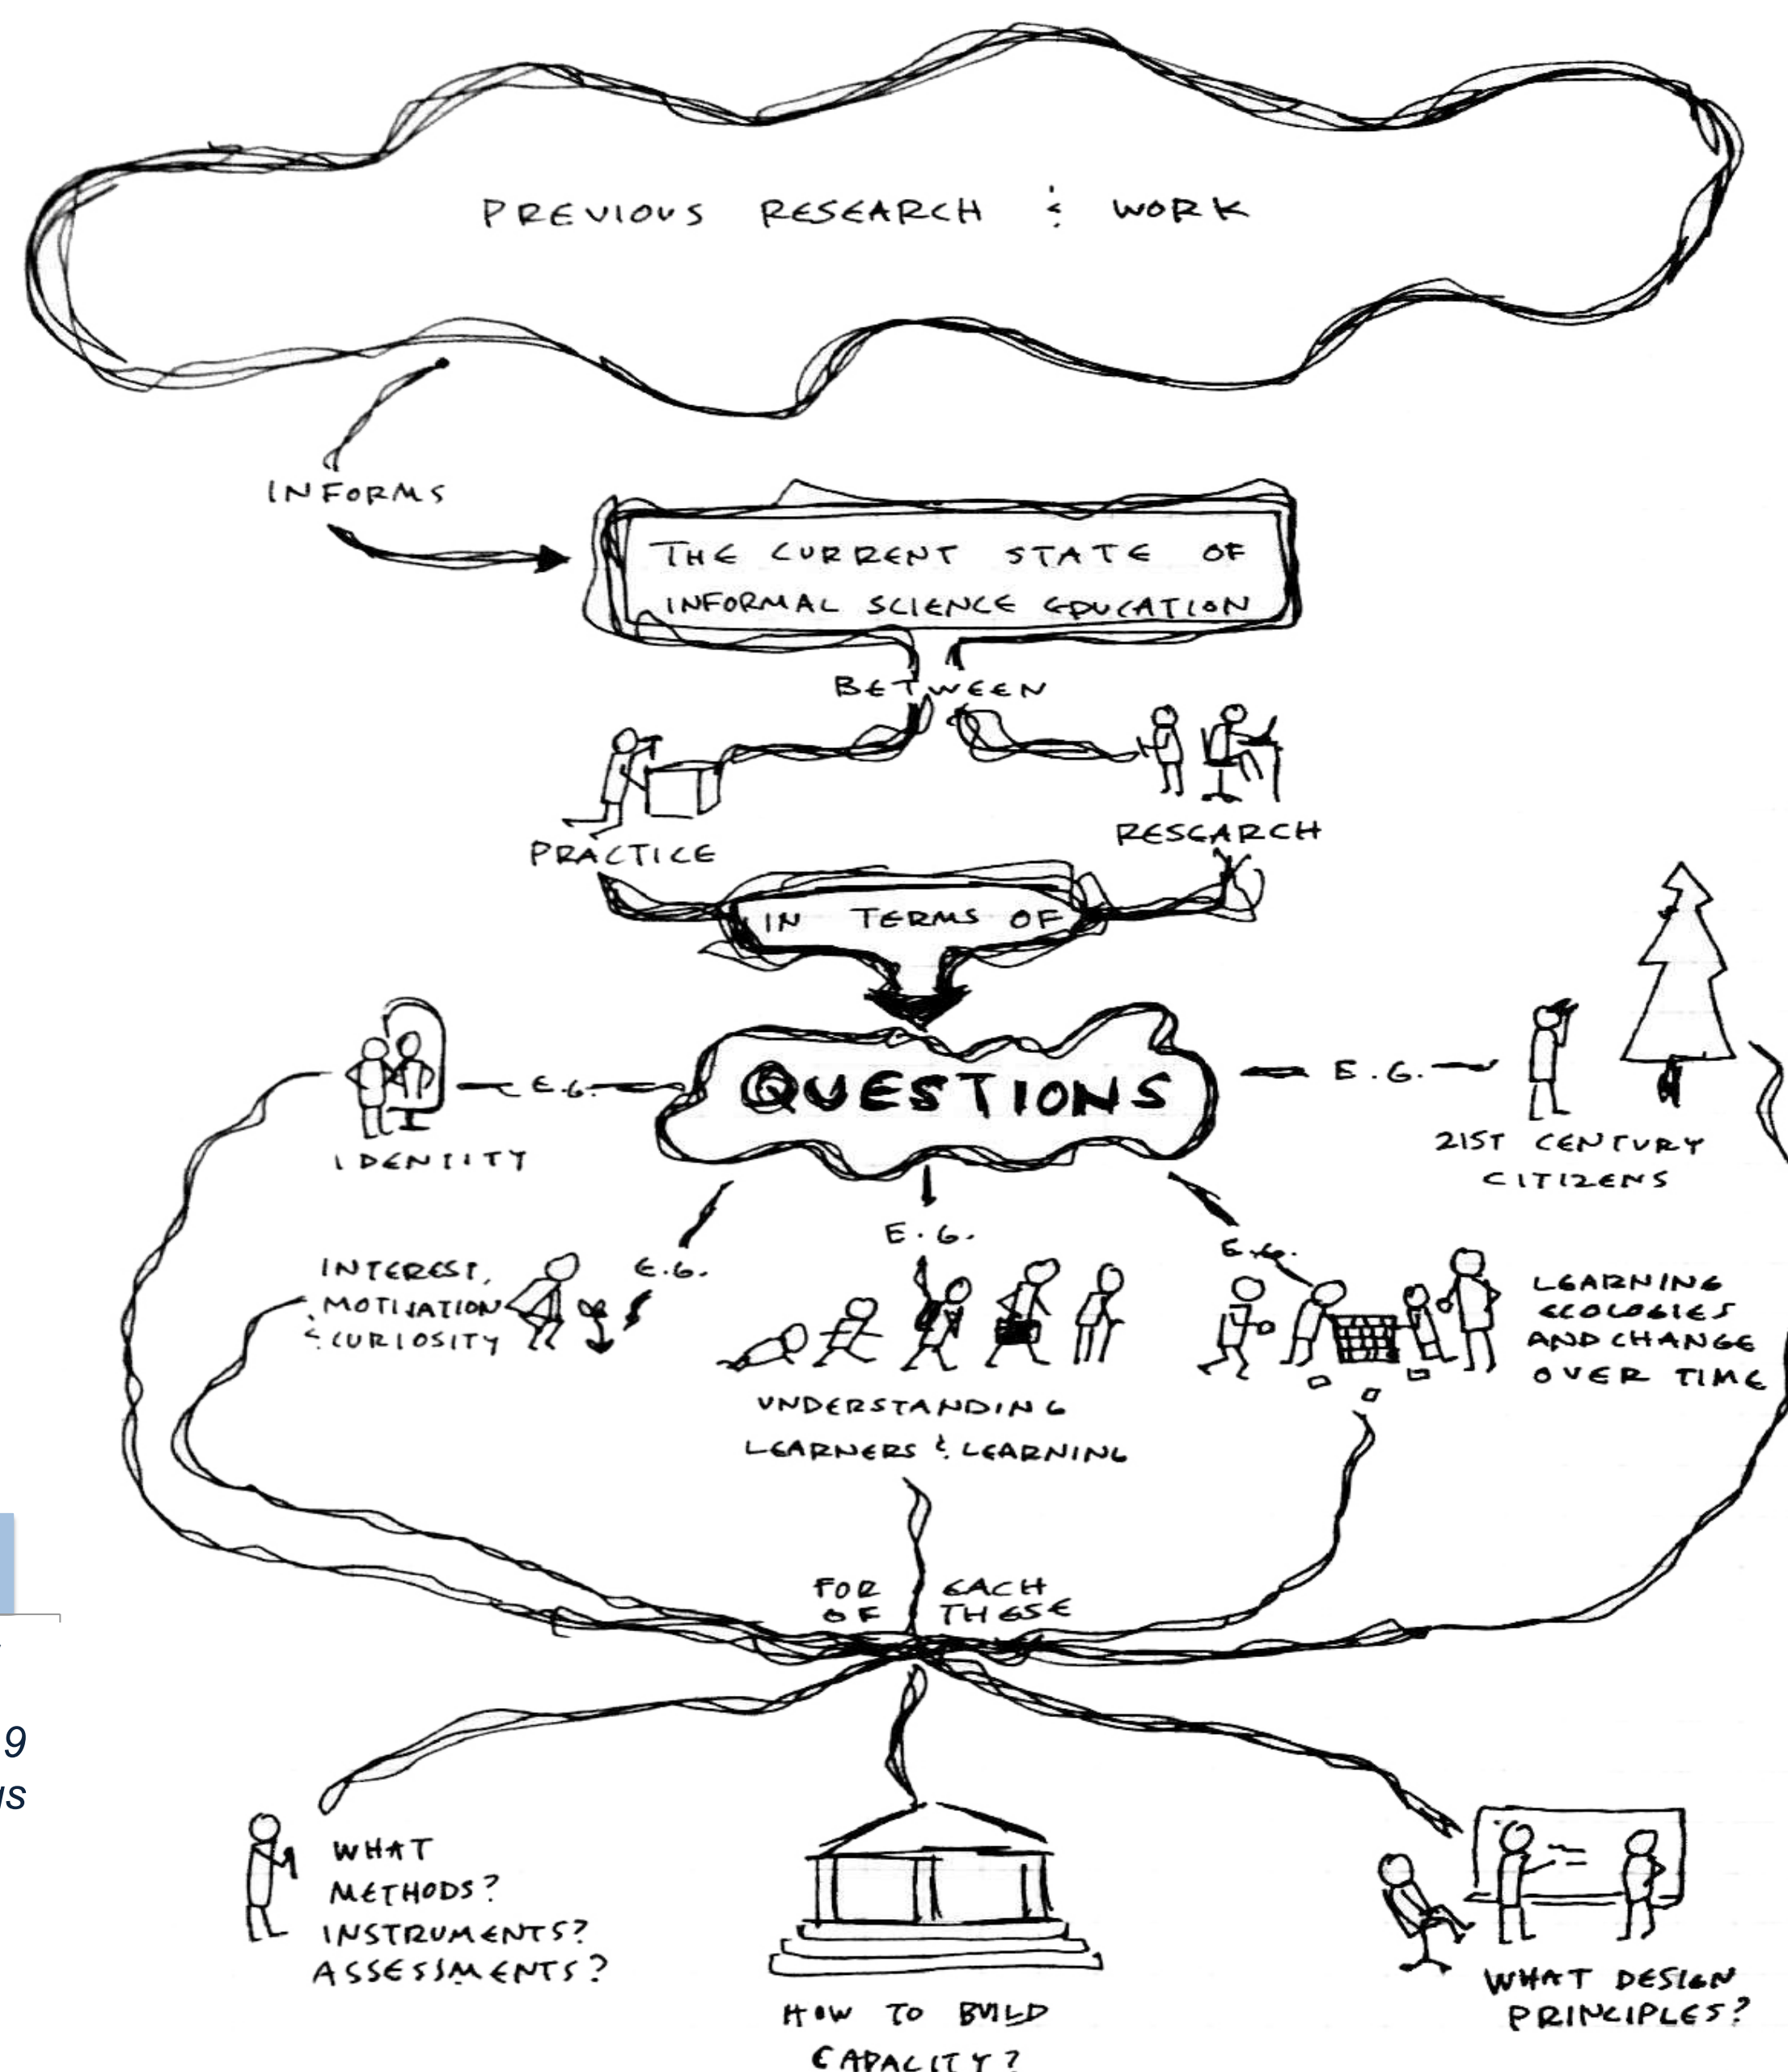 PREVIOUS RESEARCH & WORK
INFORMS
THE CURRENT STATE OF
INFORMAL SCIENCE EDUCATION
BETWEEN
PRACTICE
RESEARCH
IN TERMS OF
QUESTIONS
E.G.
IDENTITY
E.G.
21ST CENTURY
CITIZENS
E.G.
INTEREST,
MOTIVATION
& CURIOSITY
E.G.
UNDERSTANDING
LEARNERS & LEARNING
E.G.
LEARNING
ECOLOGIES
AND CHANGE
OVER TIME
FOR EACH
OF THESE
9
us
WHAT
METHODS?
INSTRUMENTS?
ASSESSMENTS?
HOW TO BUILD
CAPACITY?
WHAT DESIGN
PRINCIPLES?